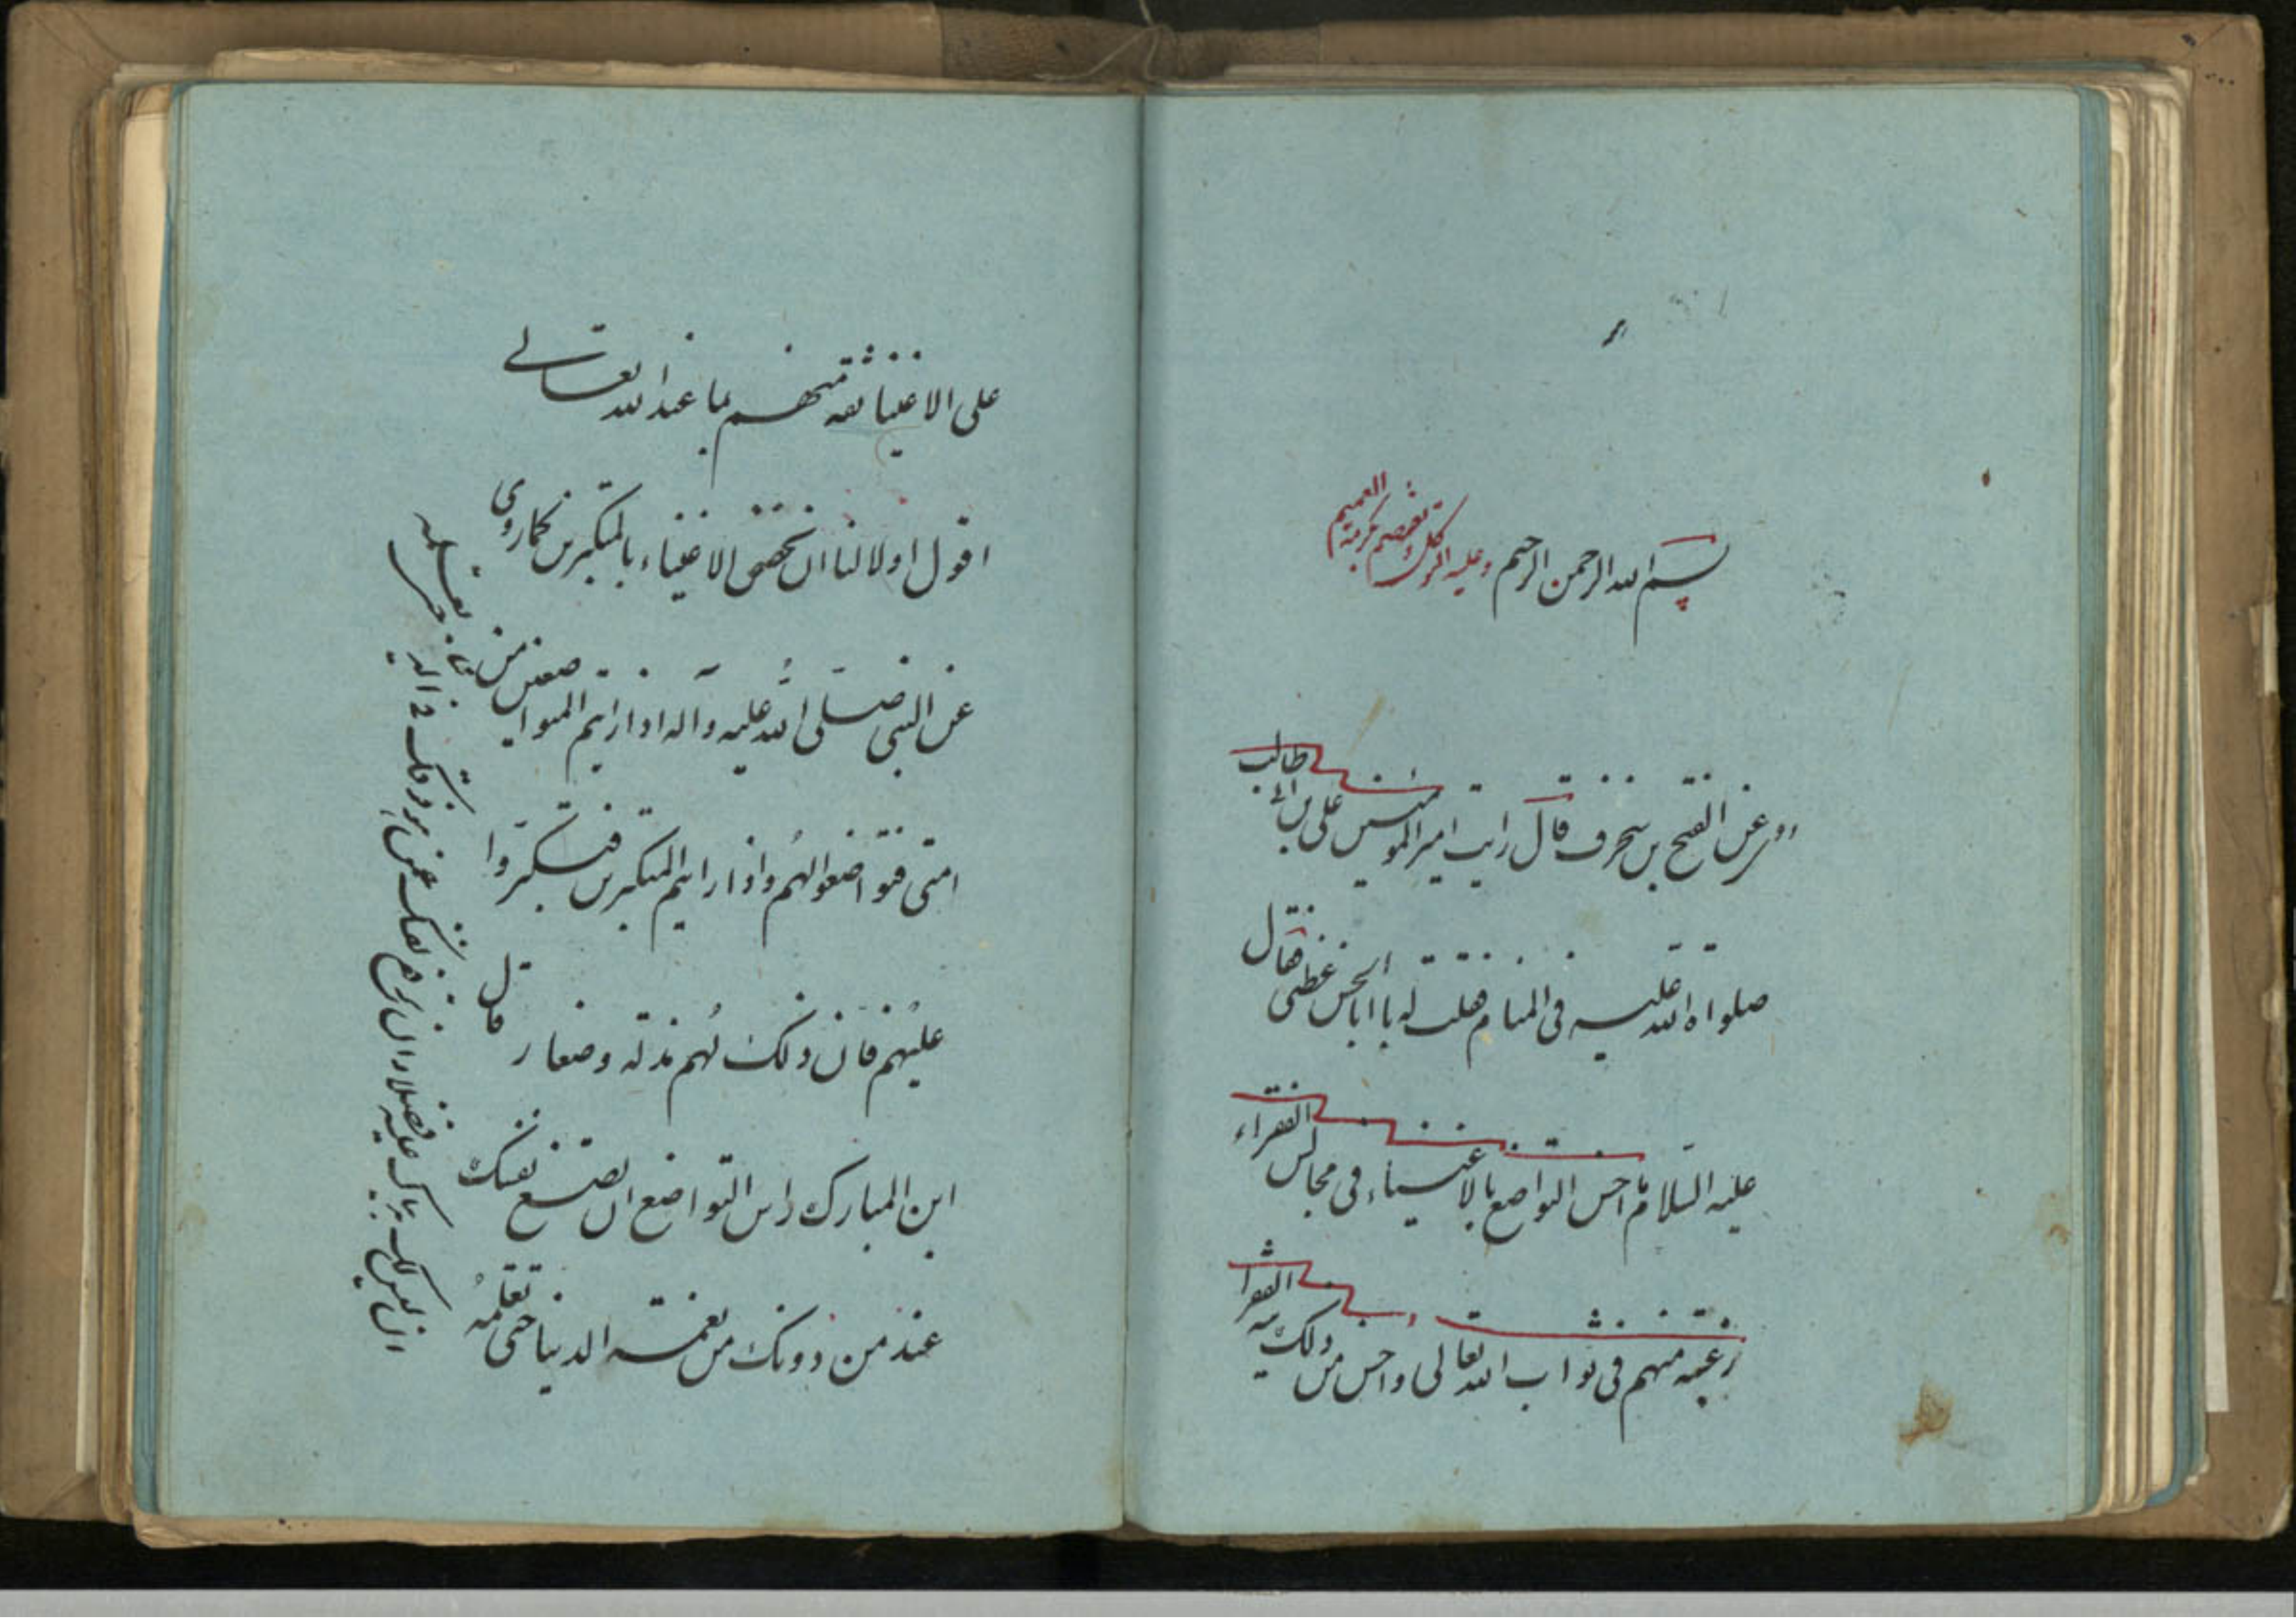 بسم الله الرحمن الرحيم وعليه
العميم
وعن الفتح بن شخرف قال رايت امير المومنين على بن ابى طالب
صلواة الله عليه فى المنام فقلت له يا ابا الحسن عظنى فقال
عليه السلام ما احسن التواضع بالاغنيياء فى مجالس الفقراء
رغبته منهم فى ثواب الله تعالى واحسن من ذلك تيه الفقرا
على الاغنيا ثقه منهم بما عند الله تعالى
اقول اولا لنا ان نخص الاغنياء بالمتكبرين كما روى
عن النبى صلى الله عليه وآله اذا رايتم المتواضعين من
امتى فتواضعوا لهم واذا رايتم المتكبرين فتكبروا
عليهم فان ذلك لهم مذله وصغار قال
ابن المبارك راس التواضع ان تضع نفسك
عند من دونك من نعمته الدنيا حتى تعلمه
ان ليس لك بدنياك عليه فضلا وان ترفع نفسك عمن هو فوقك فى الدنيا حتى تعلمه